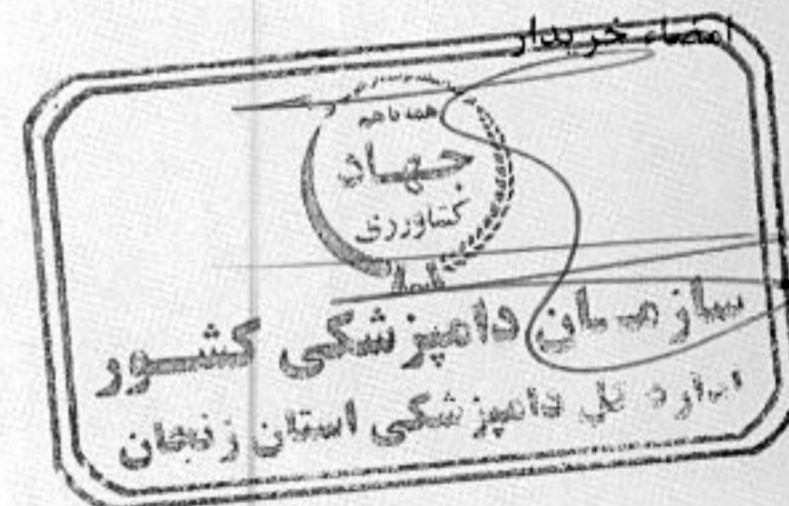 امضاء خریدار
همه با هم
جهاد
کشاورزی
سازمان دامپزشکی کشور
اداره کل دامپزشکی استان زنجان